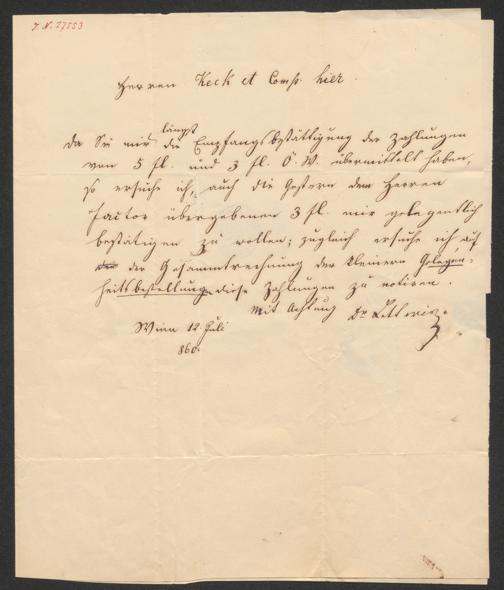 J. N. 27553
Herren Keck et Comp. hier.
längst
Da Sie mir die Empfangsbestättigung der Zahlungen
von 5 fl. und 3 fl. Ö. W. übermittelt haben,
so ersuche ich, auch die gestern dem Herren
Factor übergebenen 3 fl. mir gelegentlich
bestätigen zu wollen; zugleich ersuche ich, auf
der Gesammtrechnung der kleinern Gelegen-
heitsbestellung diese Zahlungen zu notiren.
Mit Achtung Dr.
Wien 12 Juli
860.